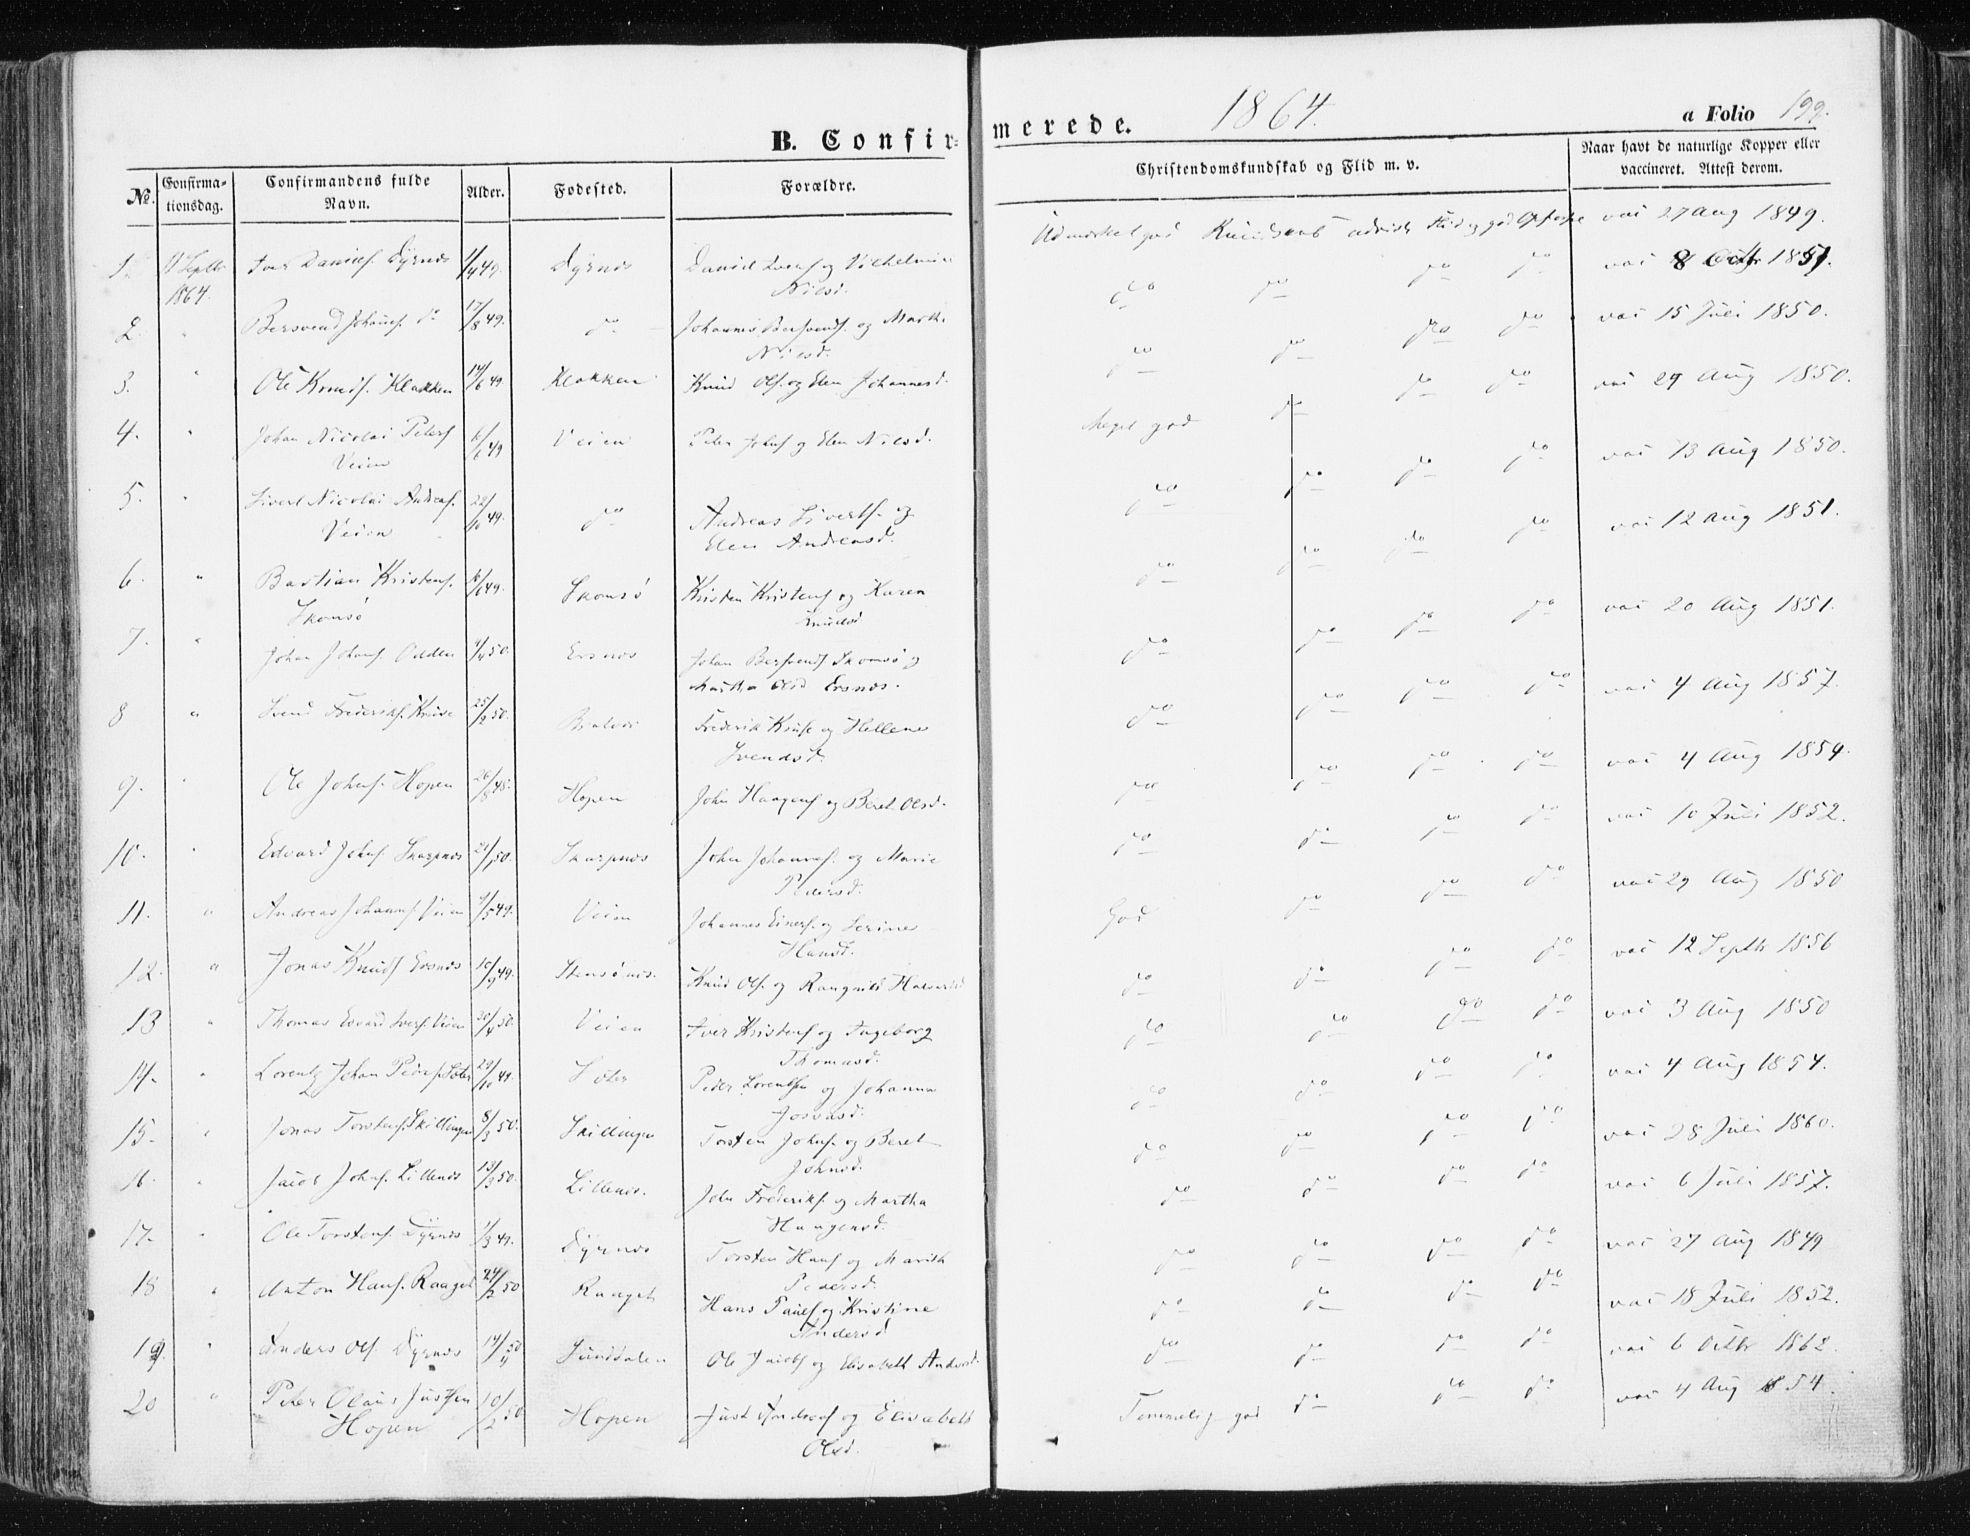 B. Confir-
merede.
1864.
a Folio 199.
No.
Confirma-
tionsdag.
Confirmandens fulde
Navn.
Alder.
Fødested.
Forældre.
Christendomskundskab og Flid m. v.
Naar havt de naturlige Kopper eller
vaccineret. Attest derom.
1. Septbr Iver Daniels. Dyrnes 1/4 49. Dyrnes Daniel Ivers. og Vilhelmine
1864. Nilsd.
Udmærket god Kundskab Flid og god vac 27 Aug 1849.
2. " Bersvend Johans. do 17/8 49. do Johannes Bersvends. og Marth.
Nilsd.
do do do do vac 8 Octbr 1851.
3. " Ole Knuds. Klakken 14/6 49. Klakken Knud Ols. og Elen Johannesd.
do do do do vac 15 Juli 1850.
4. " Johan Nicolai Peters. 6/6 49 Veien Peter Johns. og Elen Nilsd.
Veien
Meget god do do do vac 29 Aug 1850.
5. " Sivert Nicolai Andreas. 22/10 49. do Andreas Siverts. og
Veien Elen Andreasd.
do do do do vac 13 Aug 1850.
6. " Bastian Kristens. 49. Skomsø Kristen Kristens. og Karen
Skomsø Knudsd
do do do do vac 12 Aug 1851.
7. " Johan Johans. Odden 50. Ersnes Johan Bersvends. Skomsø og
Martha Olsd Ersnes.
do do do do vac 20 Aug 1851.
8 " Svend Frederiks. Kruse 25/2 50. Frederik Kruse og Hellene
Svendsd.
do do do do vac 4 Aug 1857.
9. " Ole Johns. Hopen 26/8 48. Hopen John Haagens. og Beret Olsd.
do do do do vac 4 Aug 1854.
10. " Edvard Johns. Skarpnes 21/1 50. Skarpnes John Johannes. og Marie
Pedersd.
do do do do vac 10 Juli 1852.
11. " Andreas Johanns. Veien 9/5 49. Veien Johannes Einers. og Serine
Hansd.
God do do do vac 29 Aug 1850
12. " Jonas Knuds. Ersnes 10/9 49. Knud Ols. og Rangnild
do do do do vac 12 Septbr 1856
13 " Thomas Edvard Ivers. Veien 20/4 50. Veien Iver Kristens. og Ingeborg
Thomasd.
do do do do vac 3 Aug 1850
14. " Lorentz Johan Peders. Sæter 29/10 49. Sæter Peder Lorentsen og Johanna
Josvasd.
do do do do vac 4 Aug 1854.
15. " Jonas Torstens. Skillingen 8/3 50. Skillingen Torsten Johns. og Beret
Johnsd.
do do do do vac 28 Juli 1860.
16. " Jacob Johns. Lillenes 13/3 50. Lillenes. John Frederiks. og Martha
Haagensd.
do do do do vac 6 Juli 1857.
17. " Ole Torstens. Dyrnes 1/3 49. Dyrnes Torsten Hans. og Marith
Pedersd.
do do do do vac 27 Aug 1849
18 " Anton Hans. Raaget 24/2 50 Raaget Hans Pauls. og Kristine
Andersd
do do do do vac 18 Juli 1852.
19. " Anders Ols. Dyrnes 14/4 50 Sunddalen Ole Jacobs. og Elisabeth Andersd.
do do do do vac 6 Octbr 1862.
20 " Peter Olaus Justsen 10/2 50 Hopen Just Andreas. og Elisabeth
Hopen Olsd.
Temmelig god do do do vac 4 Aug 54.